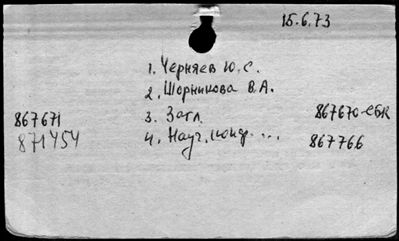 15.6.73
1. Черняев Ю. С.
2. Шорникова В. А.
867671 3. Загл. 867670-СБК
871454 4. Науч. конф. ... 867766